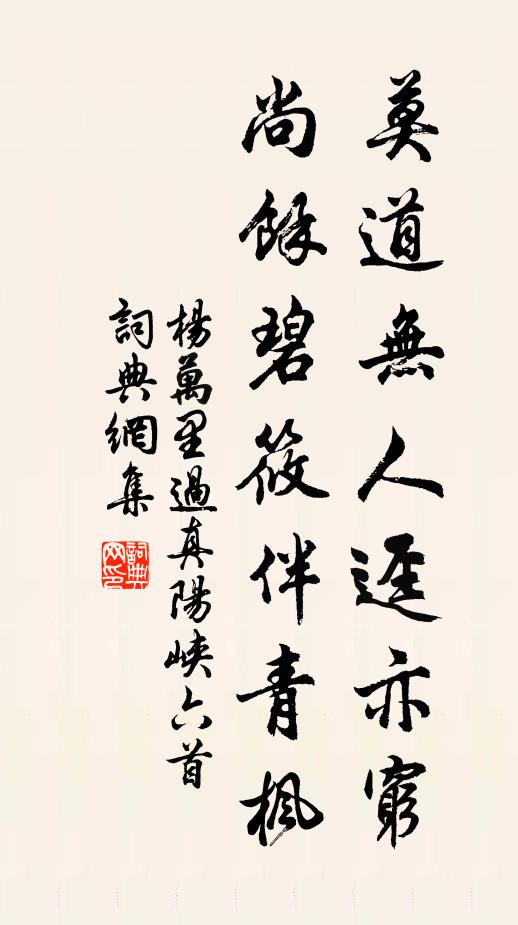 莫道無人逕亦窮
尚餘碧筱伴青楓
楊萬里過真陽峽六首
詞典網集
詞典网印